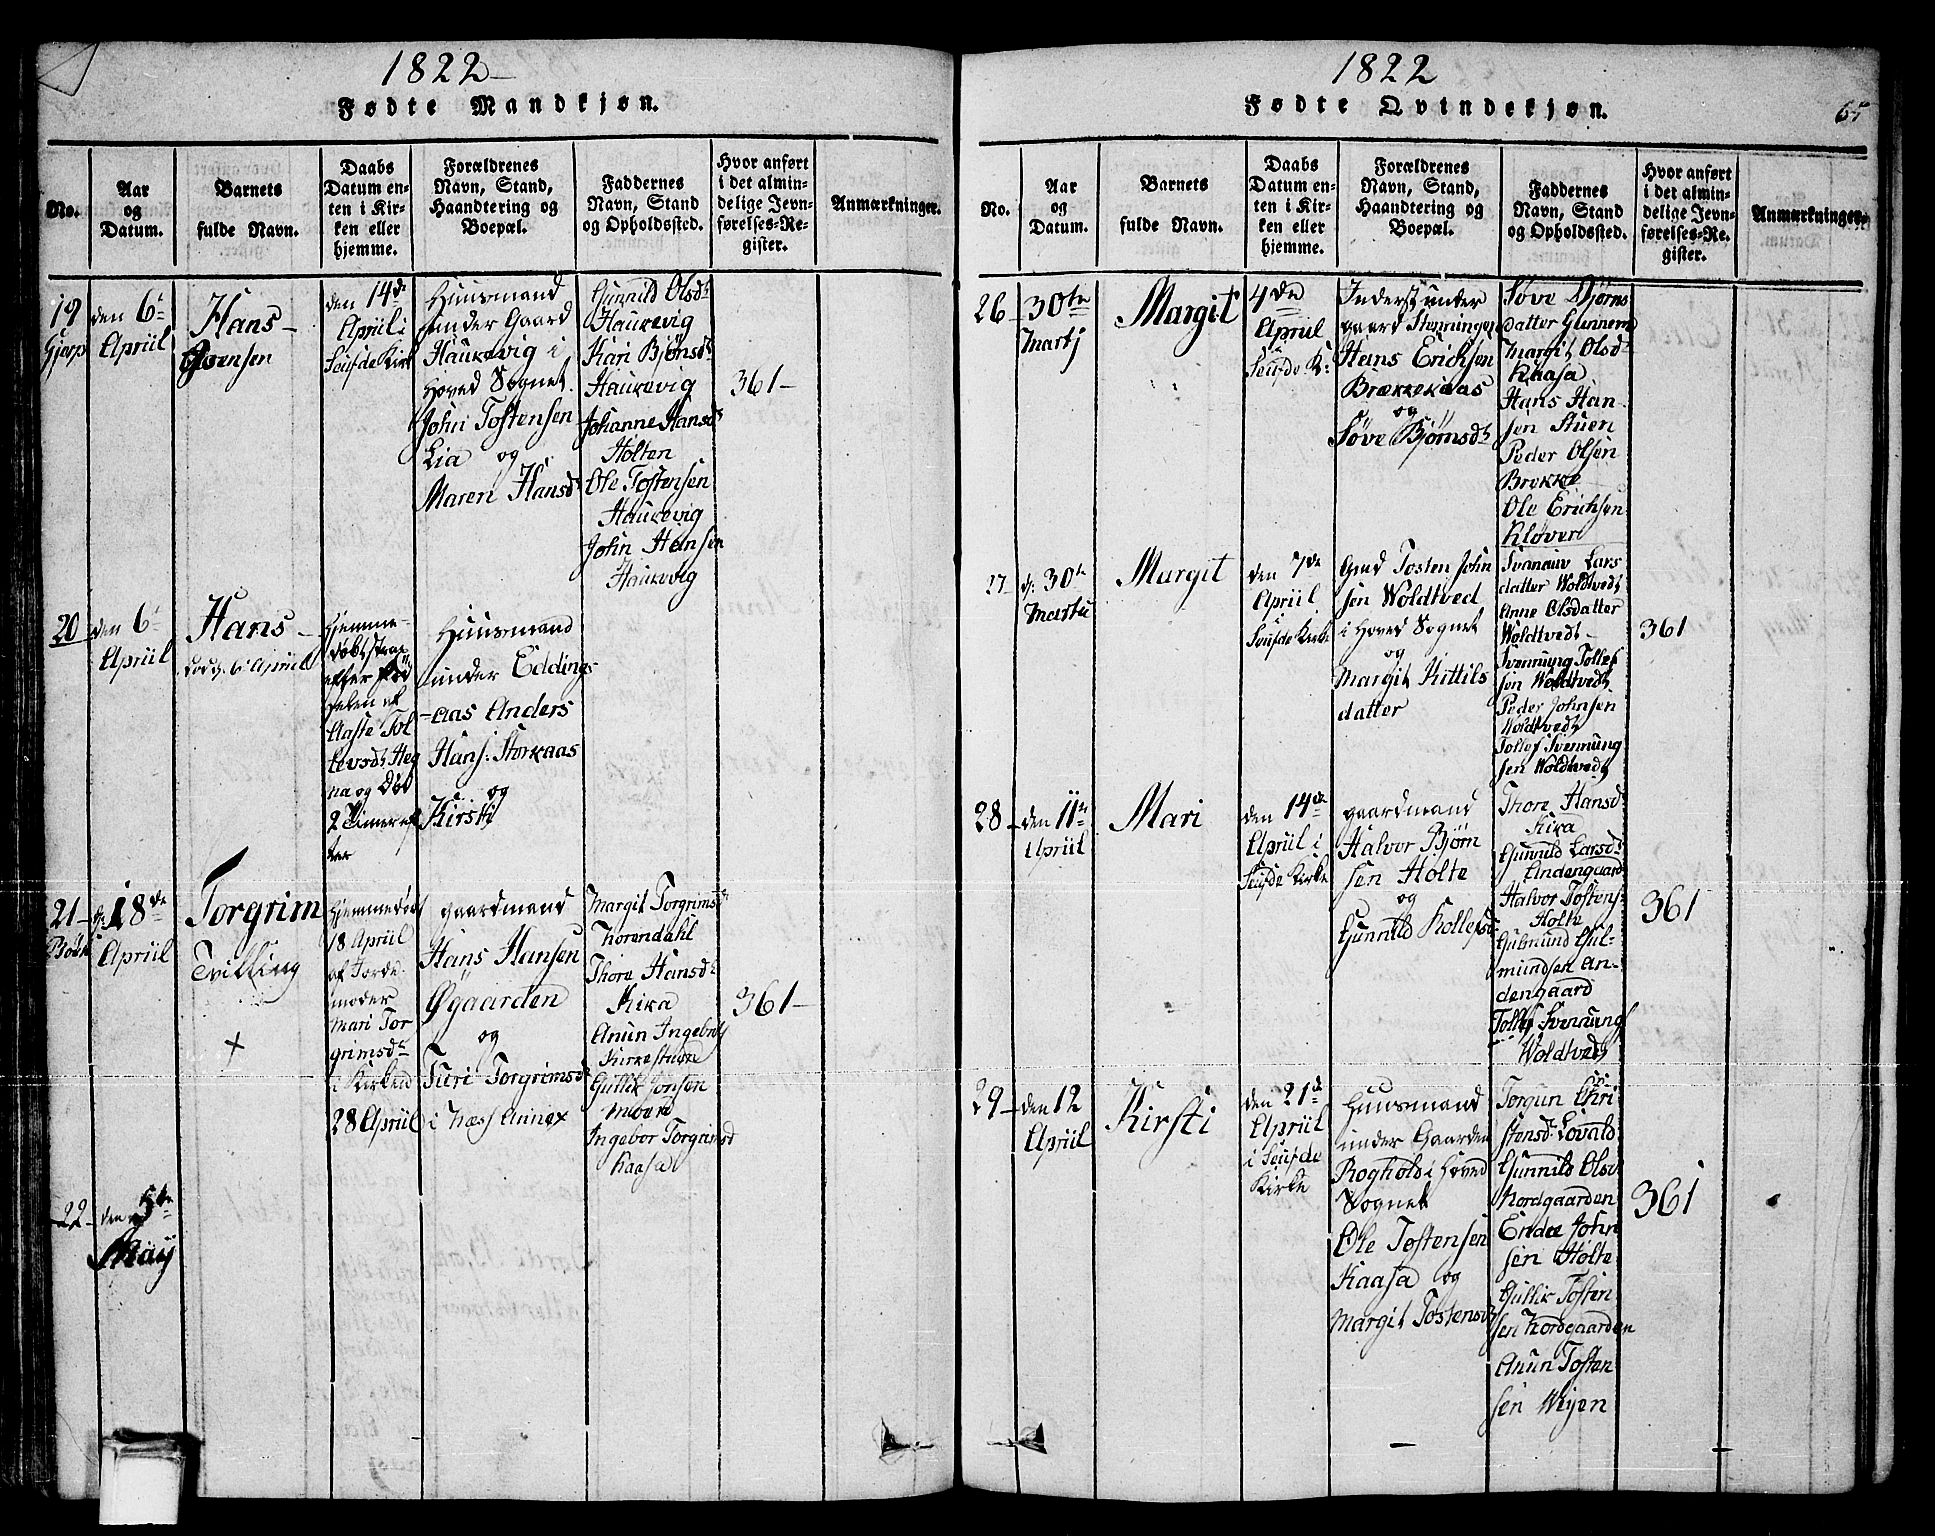 1822
Fødte Mandkjøn.
No.
Aar
og
Datum.
Barnets
fulde Navn.
Daabs
Datum en-
ten i Kir-
ken eller
hjemme.
Forældrenes
Navn, Stand,
Haandtering og
Boepæl.
Faddernes
Navn, Stand
og Opholdssted.
Hvor anført
i det almin-
delige Jevn-
førelses-Re-
gister.
Anmærkninger.
19
den 6te
Apriil
Hans
den 14de
Apriil i
Seufde Kirk
Huusmand
under Gaard
Haukevig i
Hoved Sognet
John Tostensen
Lia og
Maren Hansdt
Gunnild Olsdt
Haukevig
Kari Bjønsdt
Haukevig
Johanne Hansdt
Holten
Ole Tostensen
Haukevig
John Hansen
Haukevig
361
20
den 6te
Apriil
Hans
6te Apriil
Hjemme-
døbt strax
efter Fød
selen af
Aaste Tol
levsdt Heg
na og Død
2 Timer ef
ter
Huusmand
under Eddings
aas Anders
Hans: Storkaas
og
Kirsti
21
d: 18de
Apriil
Torgrim
Tvilling
+
Hjemmedøbt
18 Apriil
af Jorde
moder
Mari Tor
grimsdtr
i Kirken
28 Apriil
gaardmand
Hans Hansen
Øgaarden
og
Turi Torgrimsdt
i Næss Annex
Margit Torgrimsdt
Torendahl
Thore Hansdt
Kika
Anun Ingebrets
Kirkestuen
Gullik Jonsen
Ingebor Torgrimsd
Kaasa
361
22
den 5te
May
1822
65
Fødte Qvindekjøn.
No.
Aar
og
Datum.
Barnets
fulde Navn.
Daabs
Datum en-
ten i Kir-
ken eller
hjemme.
Forældrenes
Navn, Stand,
Haandtering og
Boepæl.
Faddernes
Navn, Stand
og Opholdssted.
Hvor anført
i det almin-
delige Jevn-
førelses-Re-
gister.
Anmærkninger.
26
30te
Martj
Margit
4de
Apriil
Seufde K:
Inderst under
gaard Stenningen
Hans Erichsen
Brækkekaas
og
Søve Bjørnsdt
Søve Bjørns
datter Gunnem
Margit Olsdt
Kaasa
Hans Han
sen Stuen
Peder Olsen
Brekke
Ole Erichsen
Kløver
27
d: 30te
Martii
Margit
den 7de
Apriil
Seufde Kirke
Gmd Tosten John
sen Woldtved
i Hoved Sognet
og
Margit Kittils
datter
Lars
datter Woldtvedt
Anne Olsdatter
Woldtvedt
Svennung Tollef
sen Woldtvedt
Peder Johnsen
Woldtvedt
Tollef Svennung
sen Woldtvedt
361
28
den 11te
Apriil
Mari
den 14de
Apriil i
Seufde Kirke
gaardmand
Halvor Bjørn
sen Holte
og
Gunnild Rollefsdt
Thore Hansdt
Kika
Gunnild Larsdt
Andengaard
Halvor Tostens
Holte
Gulmund Gul-
mundsen An-
dengaard
Tollef Svennungs
Woldtvedt
361
29
den 12
Apriil
Kirsti
den 21de
Apriil
i Seufde
Kirke
Huusmand
under Gaarden
Roghold i Hoved
Sognet
Ole Tostensen
Kaasa og
Margit Tostensdt
Torgun Chri
stensdt Lovald
Gunnild Olsdt
Nordgaarden
Endre John
sen Holte
Gullik Tosten
sen Nordgaarden
Anun Tosten
sen Weyen
361